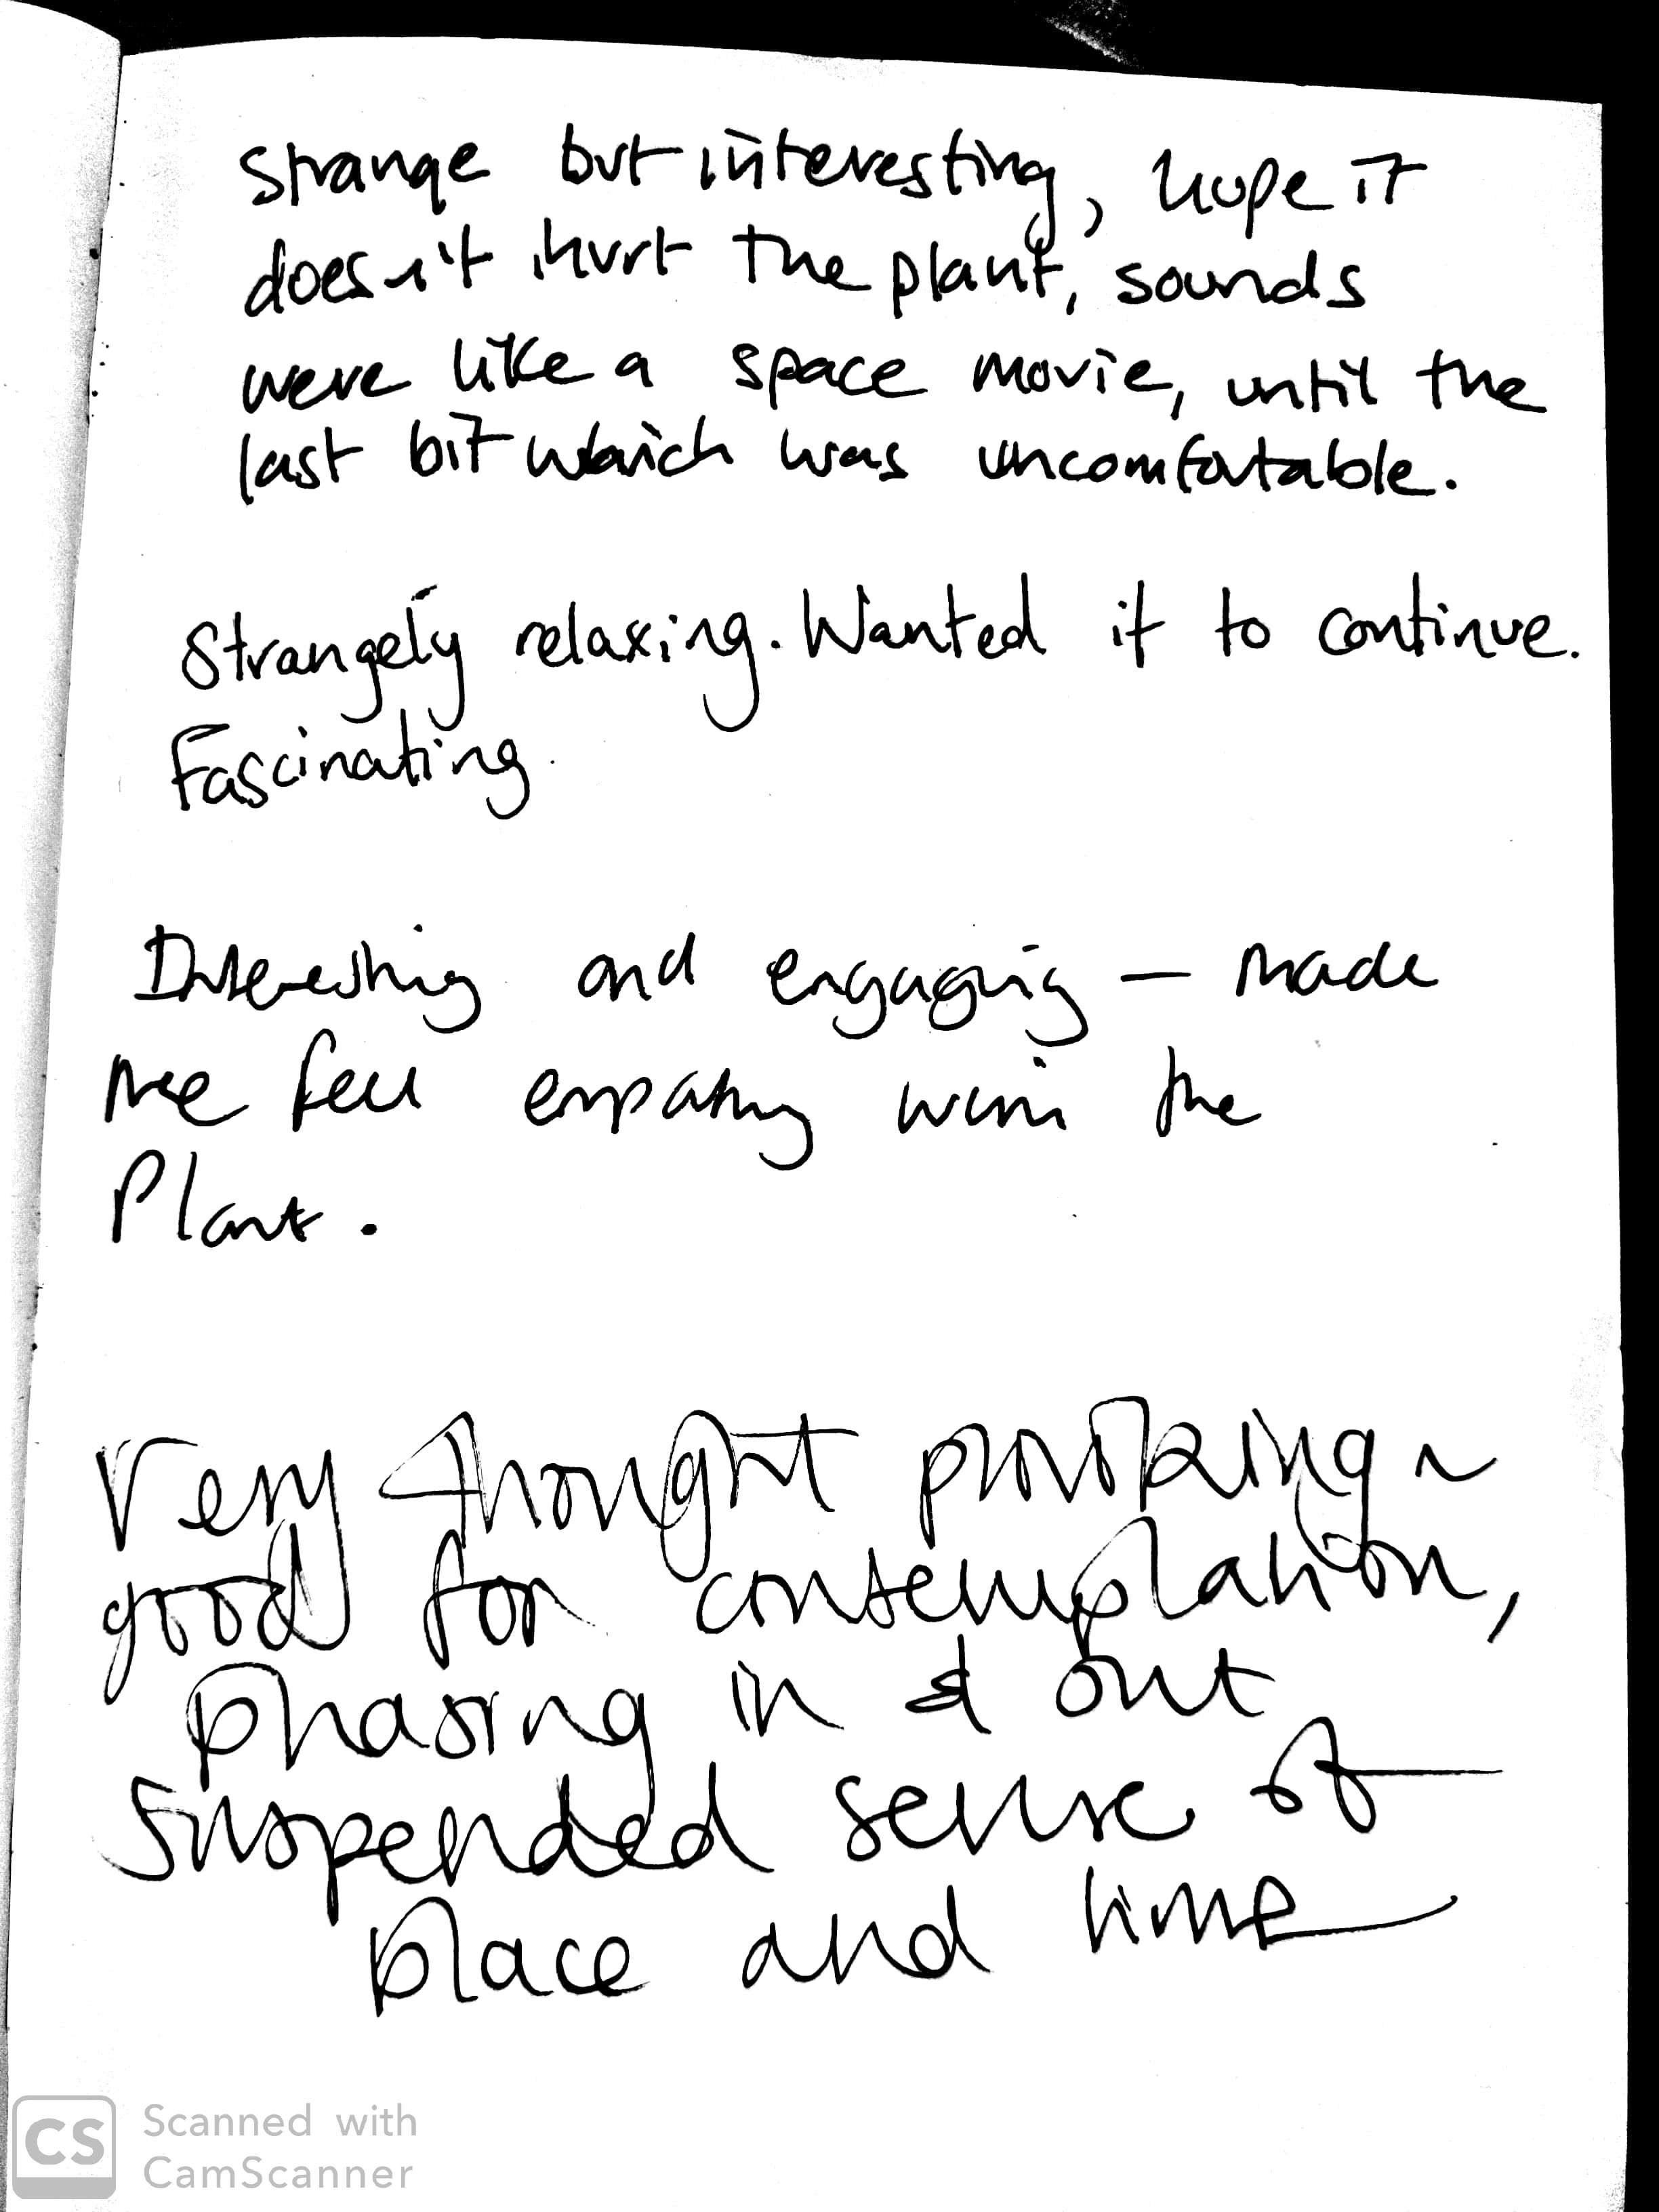 Strange but interesting, hope it
doesn't hurt the plant, sounds
were like a space movie, until the
last bit which was uncomfortable.
Strangely relaxing. Wanted it to continue.
Fascinating.
Interesting and engaging – made
me feel empathy with the
Plant.
Very thought provoking ~
good for contemplation,
phasing in & out
suspended sense of
place and time
CS
Scanned with
CamScanner